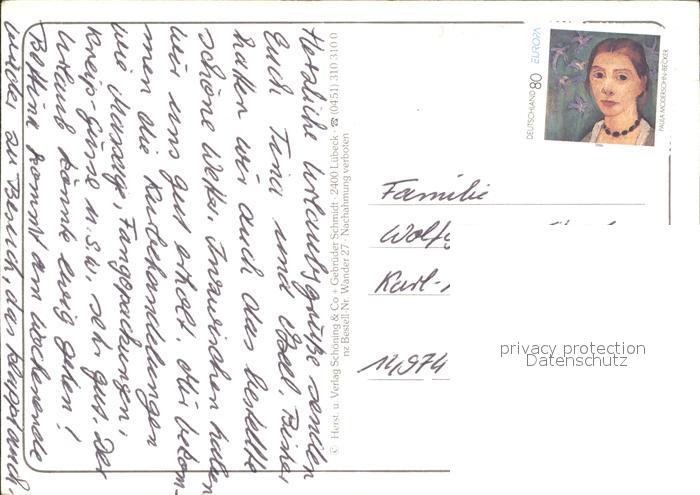 Herzliche Urlaubsgrüße senden
Euch Tina und Bisher
hatten wir auch das bestellte
schöne Wetter. Inzwischen haben
wir uns gut erholt. Mir bekom-
men die Kurbehandlungen
wie Massage, Fangopackungen,
Kneip-Güsse u.s.w. sehr gut. Der
Urlaub könnte ewig gehen!
Bettina kommt am Wochenende
wieder zu Besuch, das klappt auch.
© Herst. u. Verlag Schöning & Co + Gebrüder Schmidt · 2400 Lübeck · ☎ (0451) 310 310 0
nz Bestell-Nr. Wander 27 · Nachahmung verboten
EUROPA
DEUTSCHLAND 80
PAULA MODERSOHN-BECKER
Familie
Wolfg
Karl-
privacy protection
Datenschutz